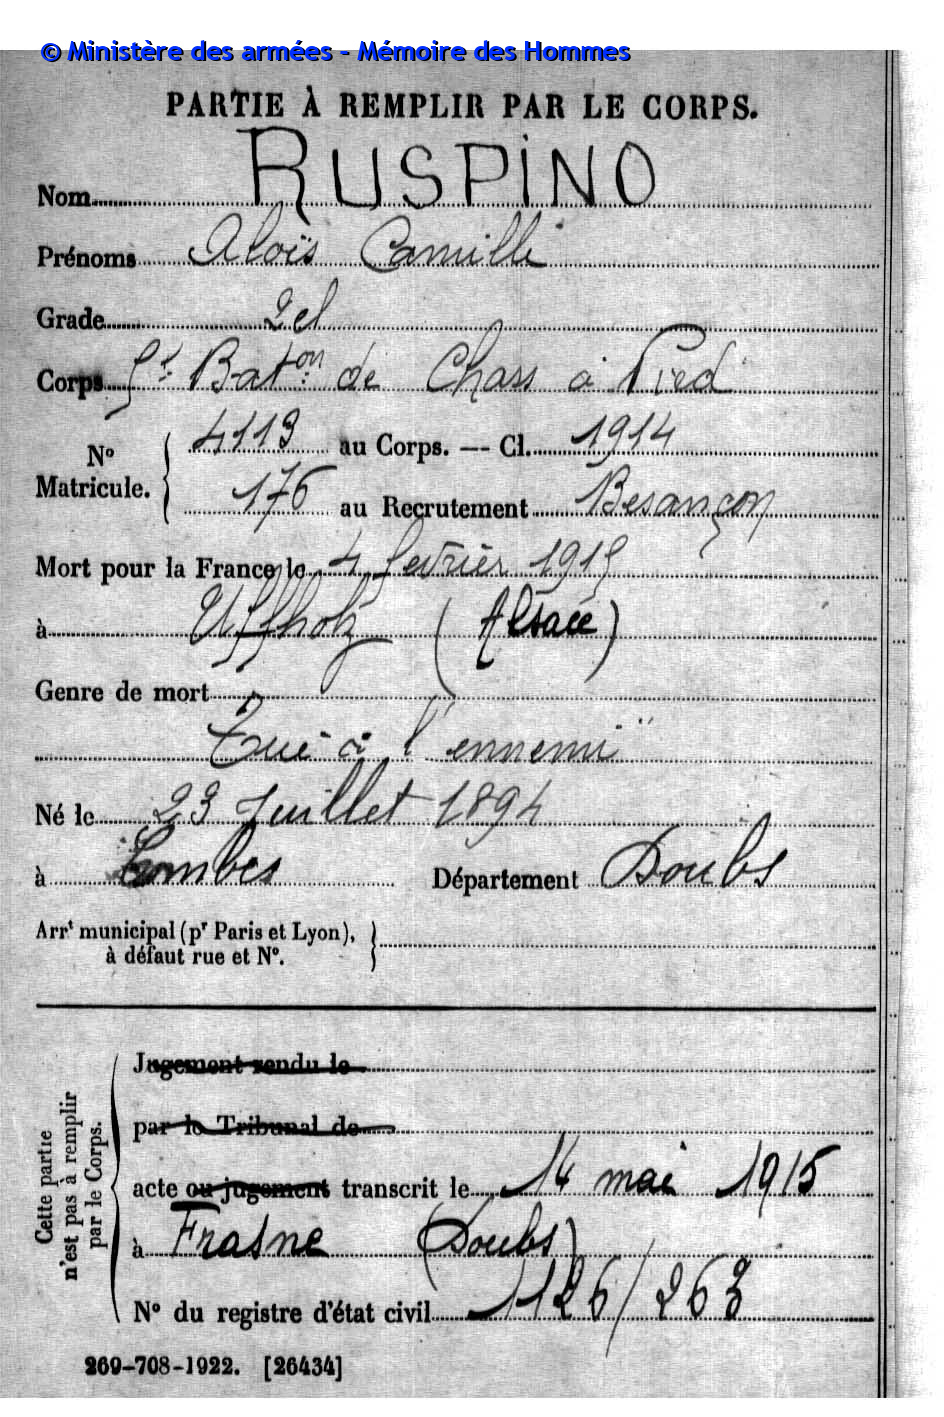 © Ministère des armées - Mémoire des Hommes
PARTIE À REMPLIR PAR LE CORPS.
Nom RUSPINO
Prénoms Aloïs Camille
Grade 2cl
Corps 5e Baton de Chass à Pied
No Matricule. 4113 au Corps. — Cl. 1914
176 au Recrutement Besançon
Mort pour la France le 4 fevrier 1915
à Uffholz (Alsace)
Genre de mort
Tué à l'ennemi
Né le 23 Juillet 1894
à Combes Département Doubs
Arrt municipal (pr Paris et Lyon),
à défaut rue et No.
Cette partie n'est pas à remplir par le Corps.
Jugement rendu le
par le Tribunal de
acte ou jugement transcrit le 14 mai 1915
à Frasne (Doubs)
No du registre d'état civil 1126/263
269-708-1922. [26434]